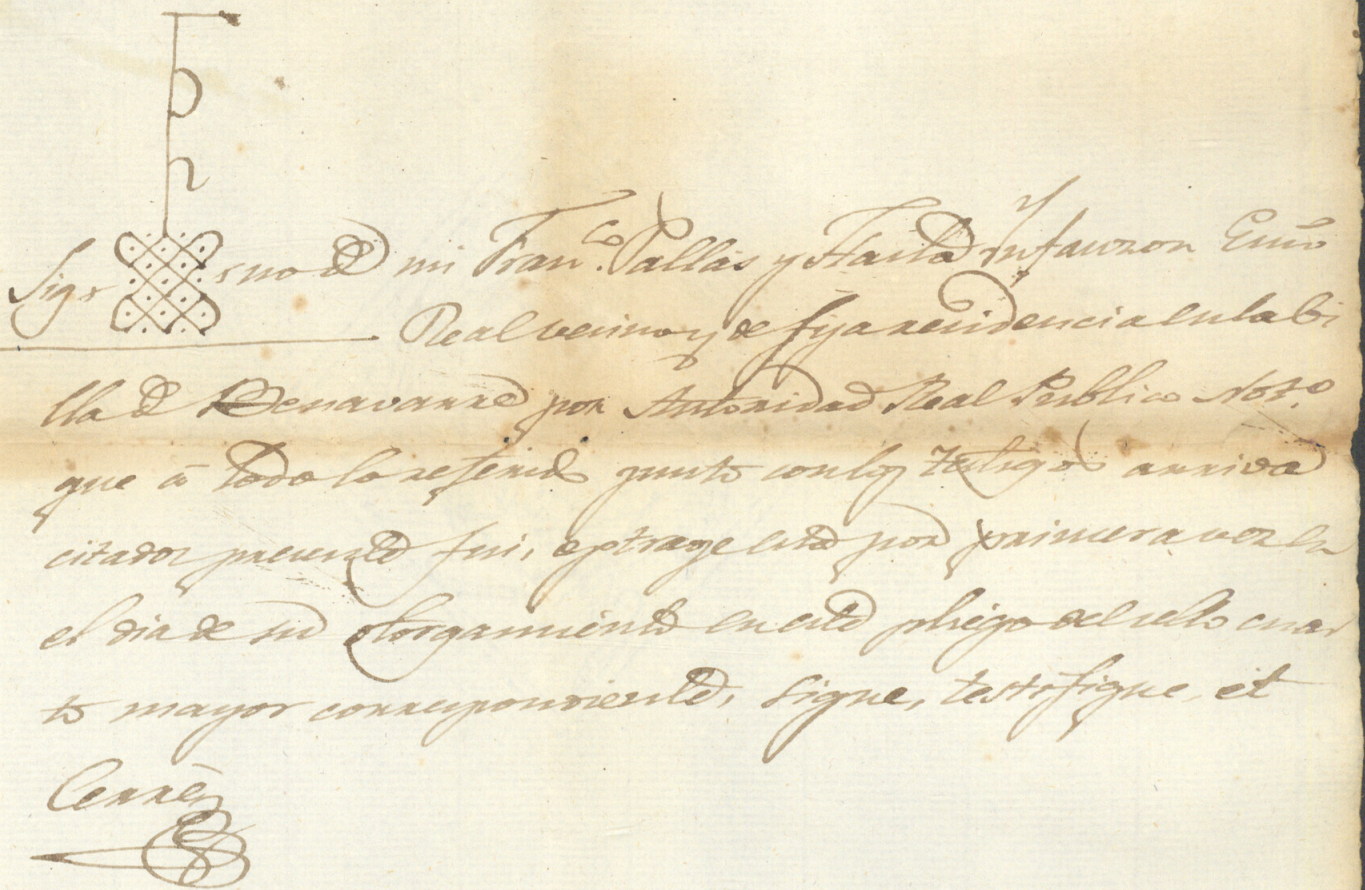 Sig-no de mi Fran.co Pallás y Infanzon Esno
Real vecino y de fija residencia en la bi
lla de Benavarre por Autoridad Real Publico Noto.
que á todo lo referido junto con los testigos arriva
citados presente fui, estrage este por primera vez en
el dia de su otorgamiento en este pliego del sello cuar
to mayor correspondiente, signe, testifique, et
Cerré